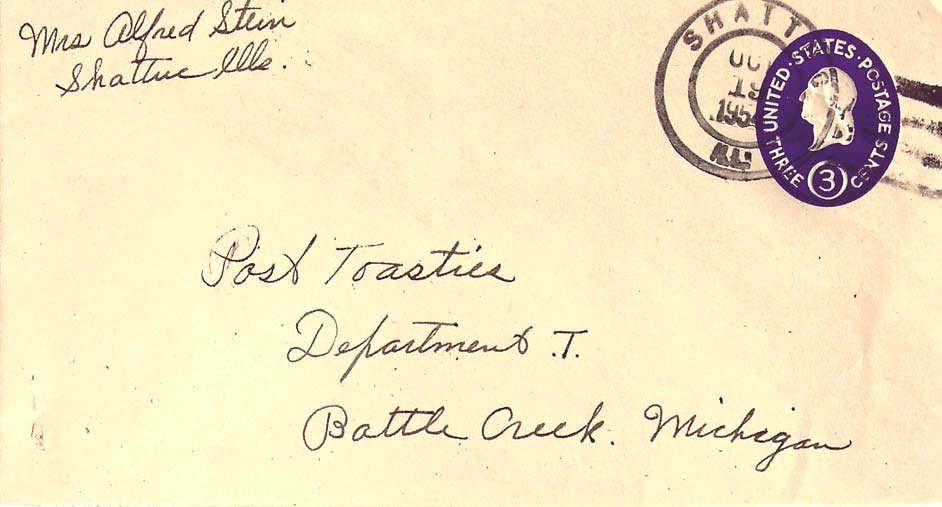 Mrs Alfred Stein
Shattuc Ills.
SHATT
OC
19
195
ILL
UNITED·STATES·POSTAGE
THREE 3 CENTS
Post Toasties
Department T.
Battle Creek. Michigan